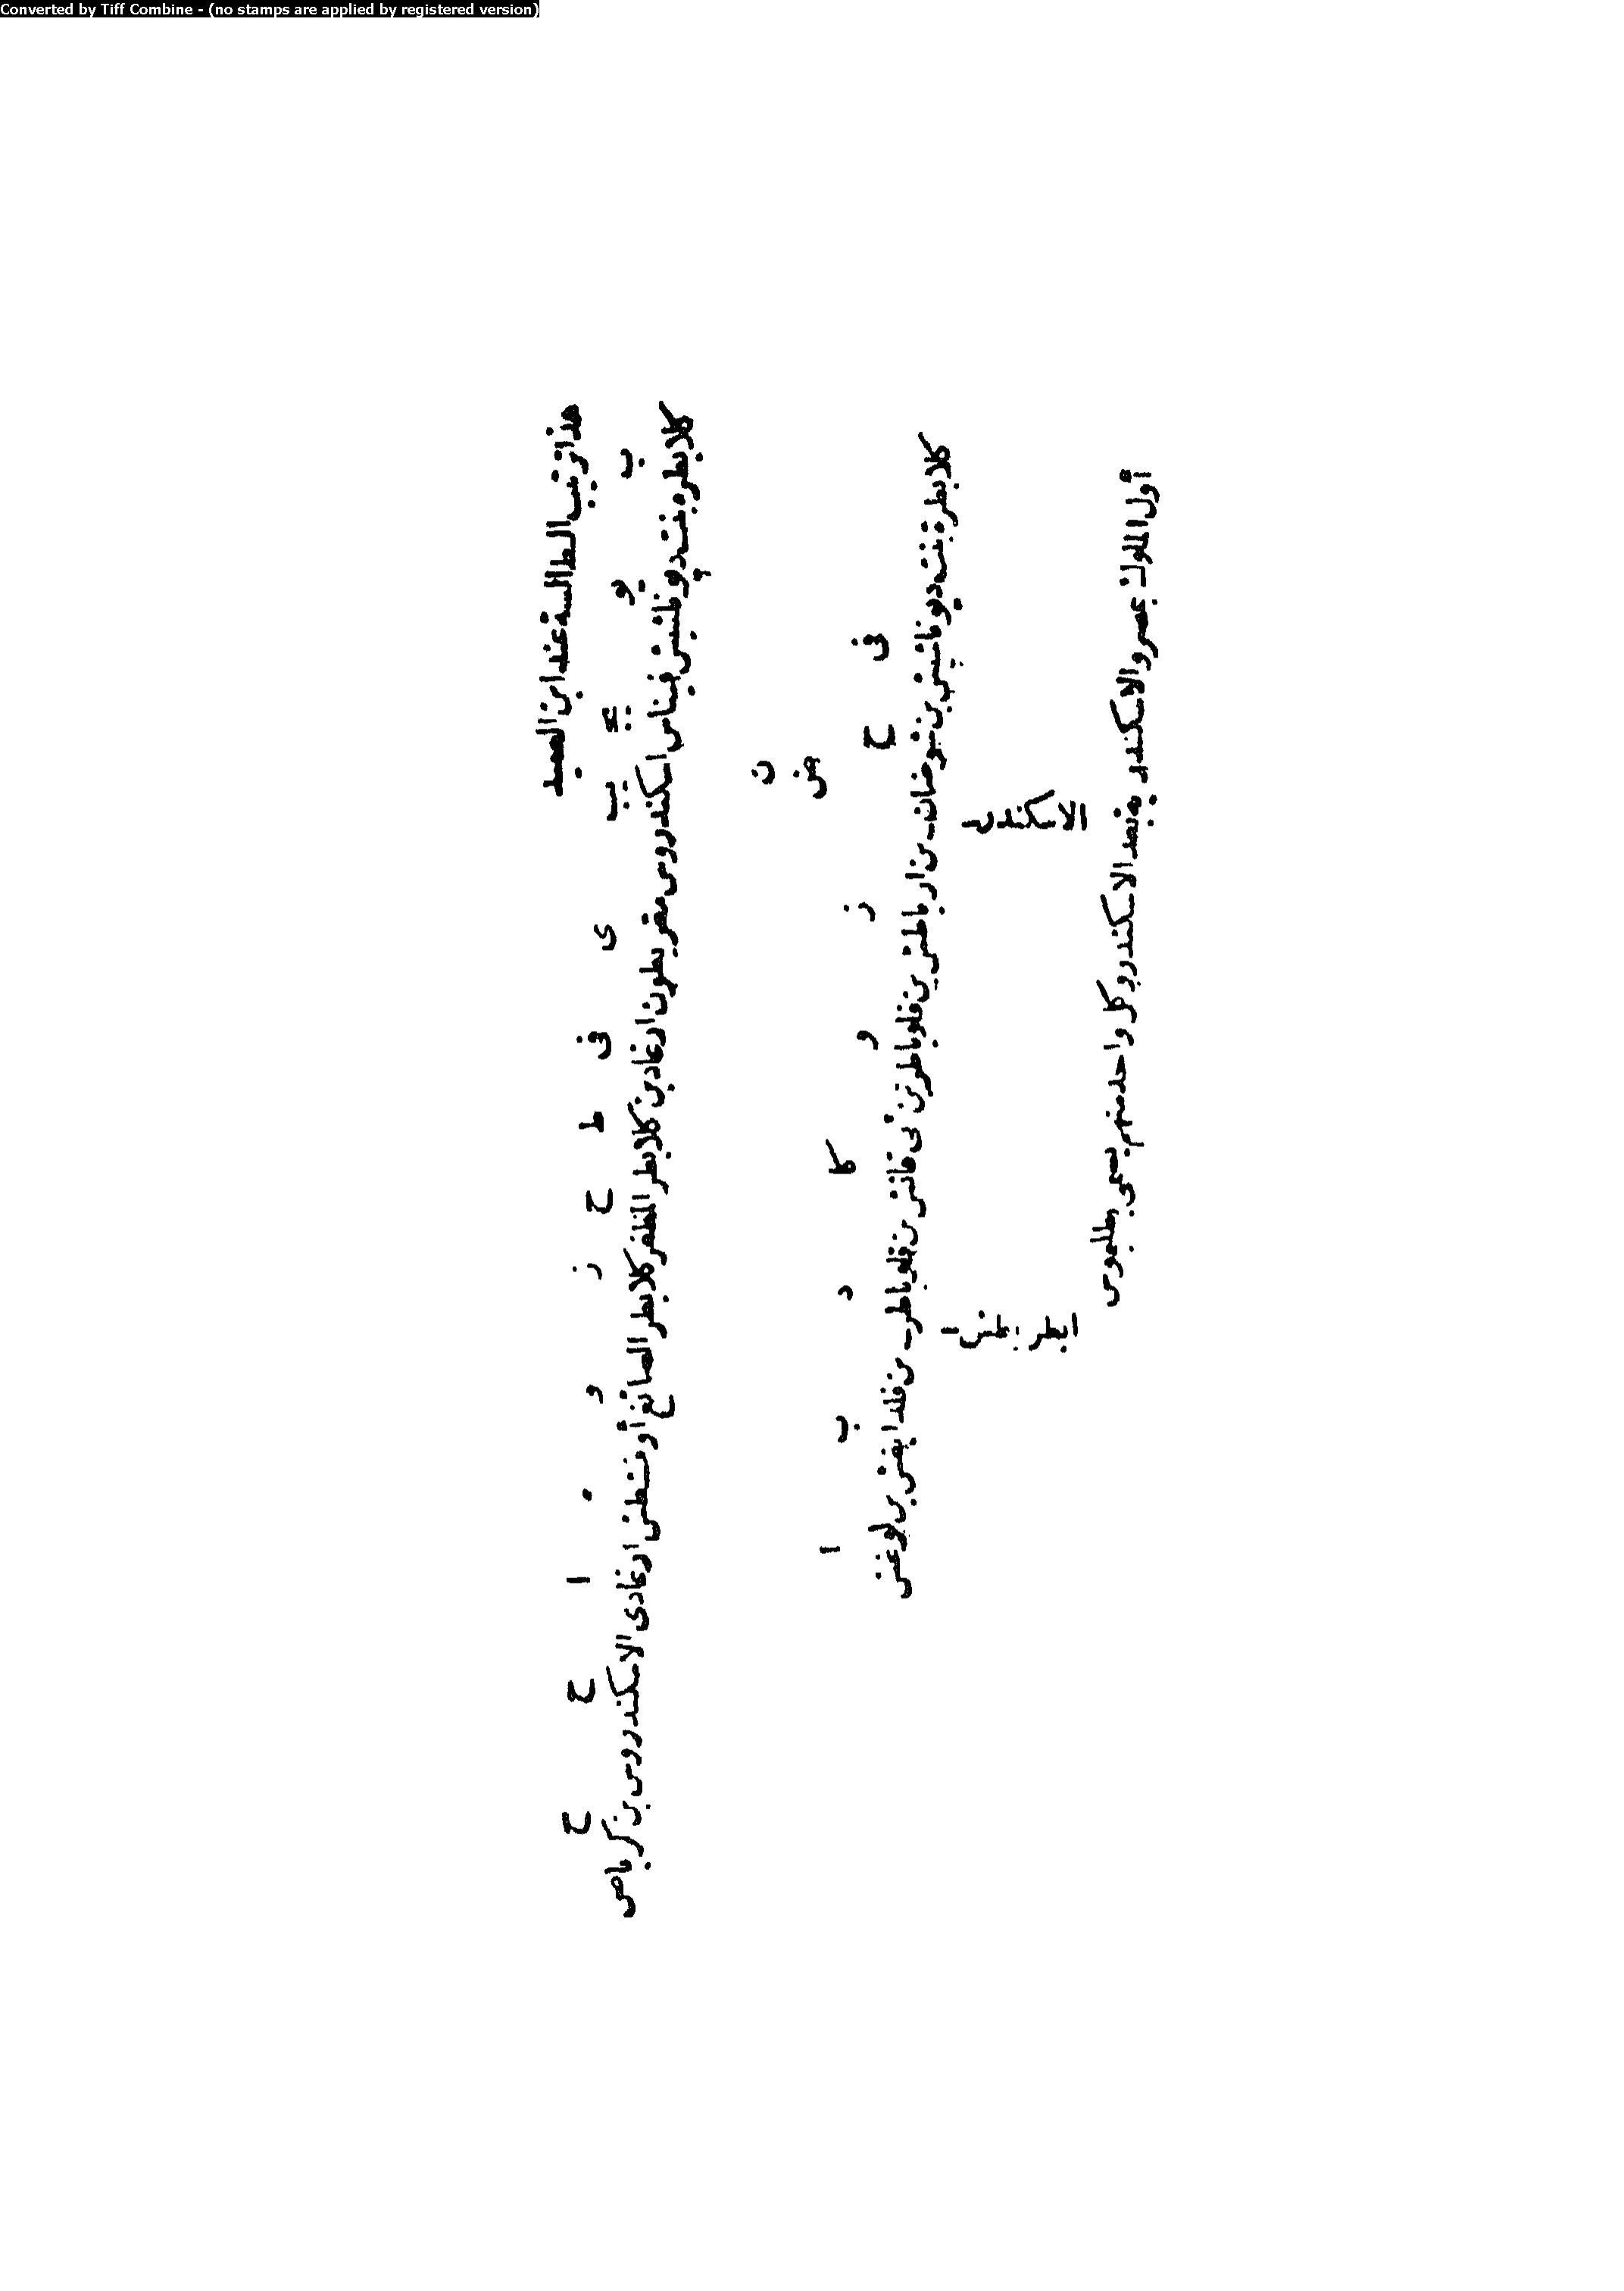 هذا ترتيب البطالسة عند ابن العميد
ب ى فى ط ح ز و ا ح ح
كلابطره بنت ديوناشيش فيناس اسكندروس مقريطون ارغادين كلابطر المظفر كلابطر الصائغ ارغادى الاسكندروس بن كرباص
ن
ض
فى ح ز و كا د ب ا
كلابطرة بنت ديوناشيش بن شوضان بن ارباطش بن فلوباطر بن فانش بن فلوباطر بن فلدابفش بن لوغش
الاسكندر
أول الملوك بمصر والاسكندرية بعد الاسكندر وكل واحد منهم يسمى بطليموس